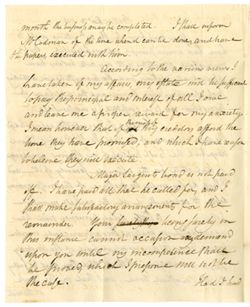 month the business may be completed. I shall inform
Mr Codman of the time when it can be done, and have
the papers executed with him.
According to the various views I
have taken of my affairs, my estate will be sufficient
to pay the principal and interest of all I owe
and leave me a proper reward for my anxiety
I mean however that if my creditors afford me
the time they have promised, and which I have assu
to believe they will execute.
Major Sargent's bond is not paid
off. I have paid all that he called for, and I
shall make satisfactory arrangements for the
remainder. Your being surety in
this instance cannot occasion any demand
upon you until my incompetence shall
be proved, which I presume will not be
the case.
Had I had